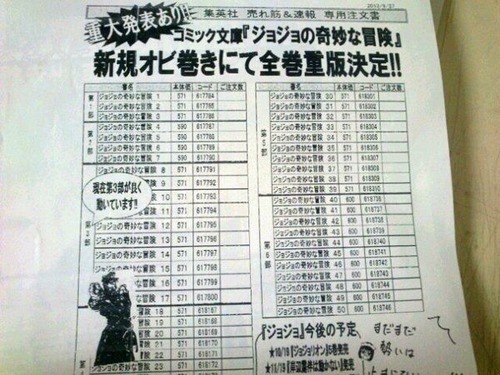 重大発表あり!!
集英社 売れ筋&速報 専用注文書
2013/9/27
コミック文庫『ジョジョの奇妙な冒険』
新規オビ巻きにて全巻重版決定!!
書名 本体価 コード ご注文数
ジョジョの奇妙な冒険 1 571 617784
ジョジョの奇妙な冒険 2 571 617785
ジョジョの奇妙な冒険 3 571
ジョジョの奇妙な冒険 4 590
ジョジョの奇妙な冒険 5 590
ジョジョの奇妙な冒険 6 590
ジョジョの奇妙な冒険 7 590 617790
ジョジョの奇妙な冒険 8 571 617791
冒険 9 571 617792
冒険 10 571 617793
冒険 11 571 617794
冒険 12 571 617795
ジョジョの奇妙な冒険 13 571 617796
ジョジョの奇妙な冒険 14 571 617797
ジョジョの奇妙な冒険 15 571 617798
奇妙な冒険 16 571 617799
冒険 17 571 617800
冒険 18 571
冒険 19 571
冒険 20 571
冒険 21 571
冒険 22 571
冒険 23 571
第1部
第2部
第3部
現在第3部が良く
動いています!!
書名 本体価 コード ご注文数
ジョジョの奇妙な冒険 30 571 618301
ジョジョの奇妙な冒険 31 571 618302
ジョジョの奇妙な冒険 32 571 618303
ジョジョの奇妙な冒険 33 571 618304
ジョジョの奇妙な冒険 34 571
ジョジョの奇妙な冒険 35 571
ジョジョの奇妙な冒険 36 571
ジョジョの奇妙な冒険 37 571
ジョジョの奇妙な冒険 38 571
ジョジョの奇妙な冒険 39 571 618310
ジョジョの奇妙な冒険 40 600
ジョジョの奇妙な冒険 41 600
ジョジョの奇妙な冒険 42 600
ジョジョの奇妙な冒険 43 600
ジョジョの奇妙な冒険 44 600 618740
ジョジョの奇妙な冒険 45 600 618741
ジョジョの奇妙な冒険 46 600 618742
ジョジョの奇妙な冒険 47 600 618743
ジョジョの奇妙な冒険 48 600 618744
ジョジョの奇妙な冒険 49 600 618745
ジョジョの奇妙な冒険 50 600 618746
『ジョジョ』今後の予定
★10/18『ジョジョリオン』
★11/19『岸辺露伴は動かない』発売
まだまだ
勢いは